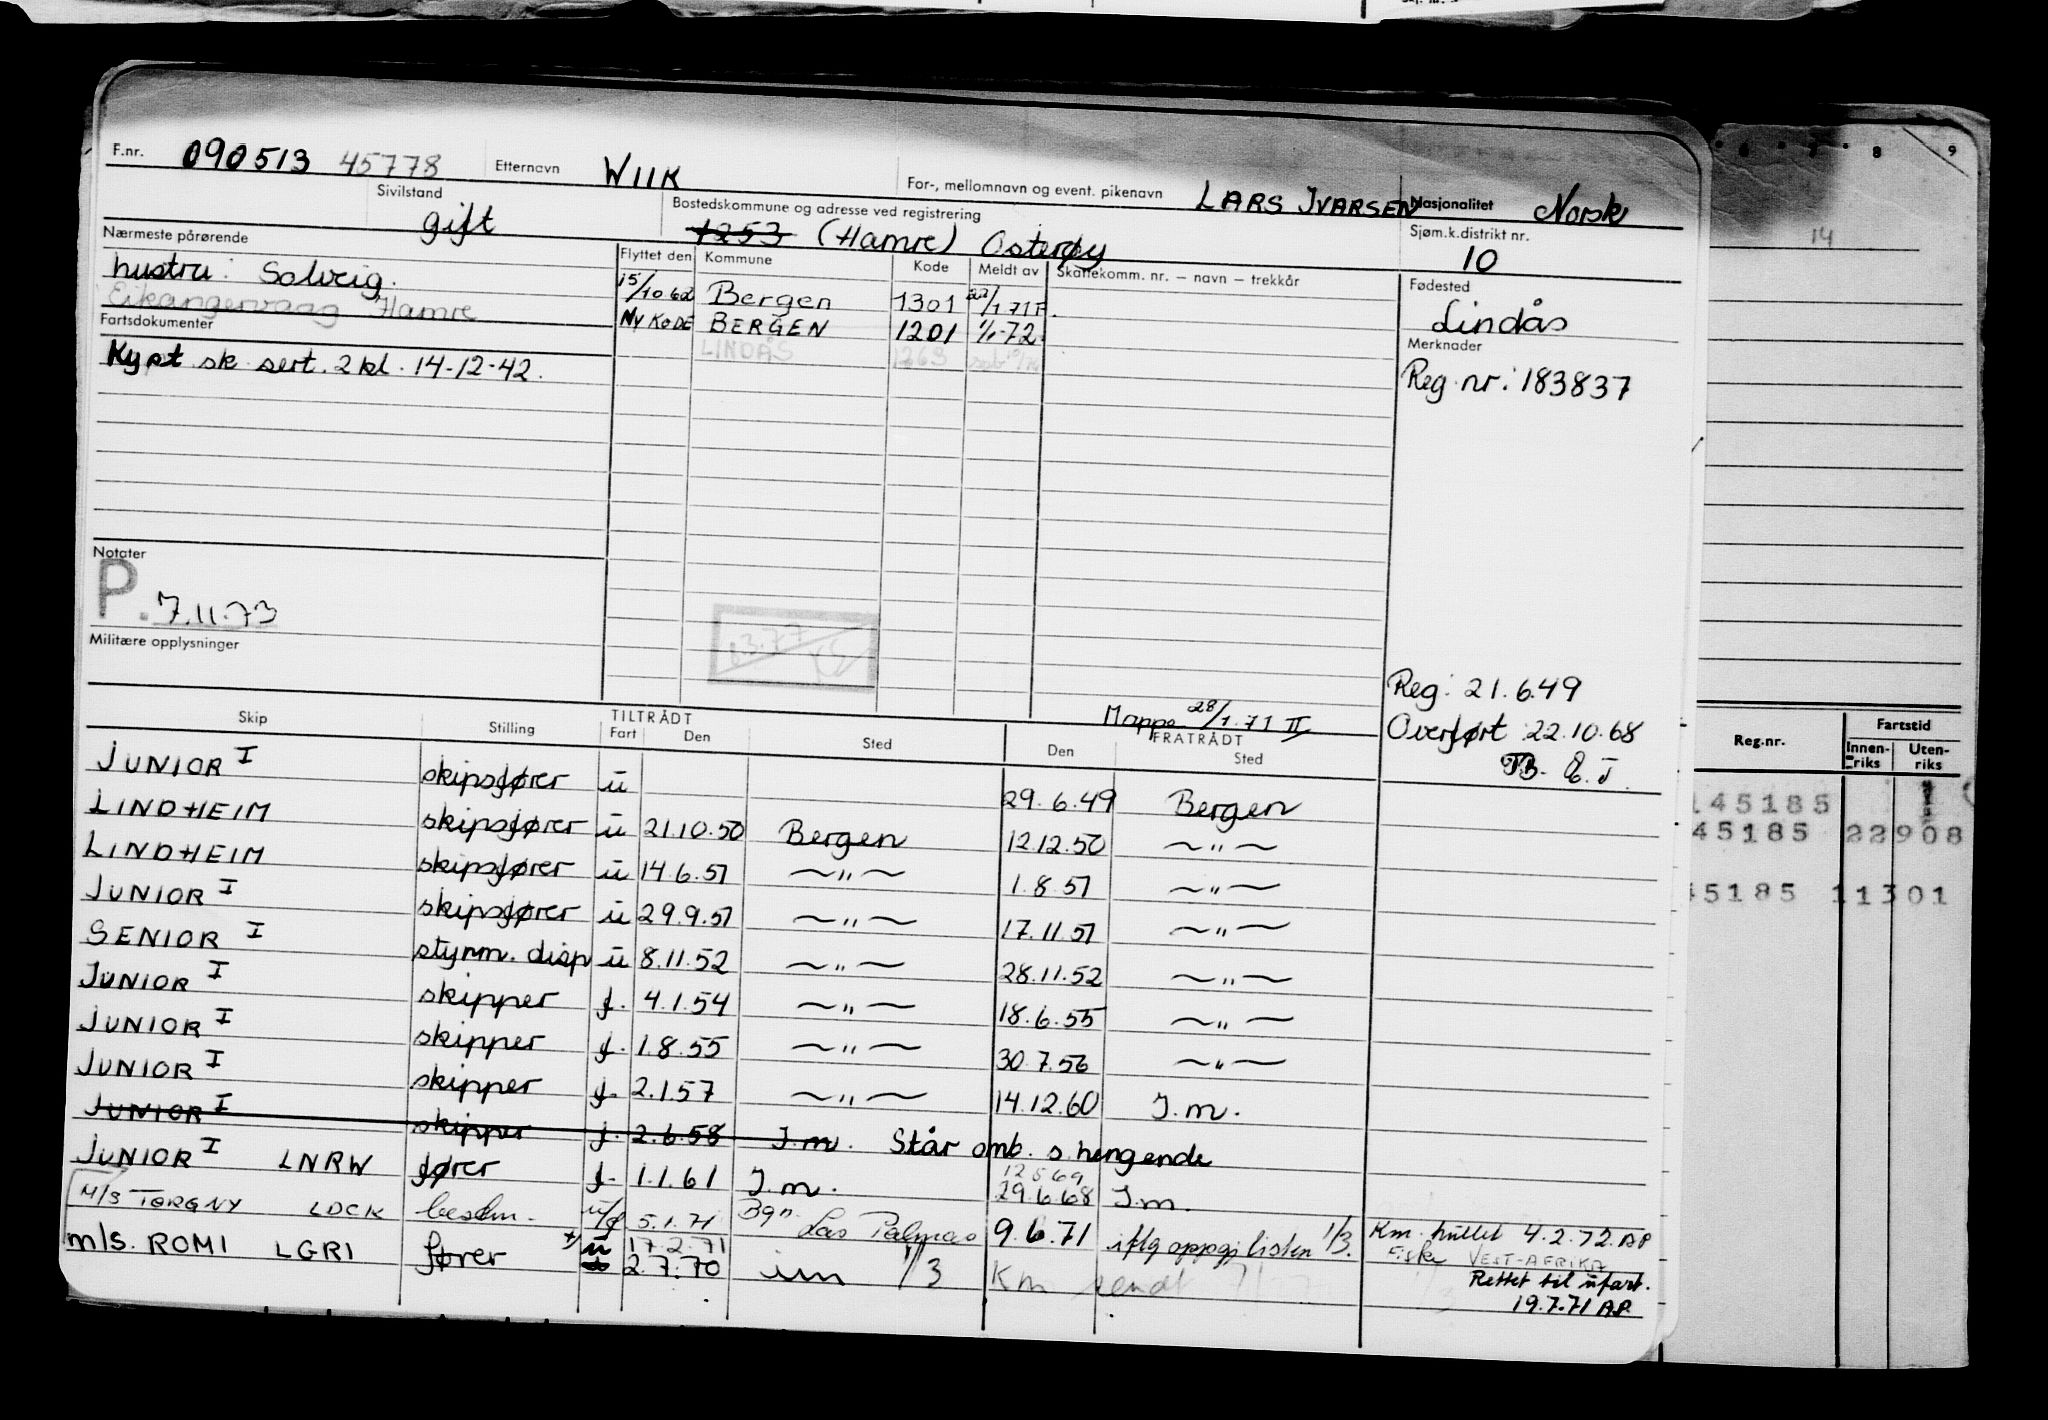 F.nr. 090513 45778 Etternavn WIIK For-, mellomnavn og event. pikenavn LARS IVARSEN Nasjonalitet Norsk
Sivilstand gift Bostedskommune og adresse ved registrering 1253 (Hamre) Osterøy Sjøm.k.distrikt nr. 10
Nærmeste pårørende Flyttet den Kommune Kode Meldt av Skattekomm. nr. — navn — trekkår Fødested
hustru: Solveig. 15/10 62 Bergen 1301 22/1 71 F. Lindås
Eikangervaag Hamre
Fartsdokumenter NY KODE BERGEN 1201 1/1-72 Merknader
Kyst. sk. sert. 2 kl. 14-12-42. LINDÅS 1263 Reg. nr: 183837
Notater
P. 7.11.73
Militære opplysninger
Reg: 21.6.49
Mappe 28/1.71 II Overført 22.10.68
Skip Stilling TILTRÅDT Fart Den Sted FRATRÅDT Den Sted
JUNIOR I skipsfører u 29.6.49 Bergen
LINDHEIM skipsfører u 21.10.50 Bergen 12.12.50 —"—
LINDHEIM skipsfører u 14.6.51 —"— 1.8.51 —"—
JUNIOR I skipsfører u 29.9.51 —"— 17.11.51 —"—
SENIOR I styrm. disp u 8.11.52 —"— 28.11.52 —"—
JUNIOR I skipper f. 4.1.54 —"— 18.6.55 —"—
JUNIOR I skipper f. 1.8.55 —"— 30.7.56 —"—
JUNIOR I skipper f. 2.1.57 —"— 14.12.60 I.m.
JUNIOR I skipper f. 2.6.58 I.m. Står omb. s.hengende
JUNIOR I LNRW fører f. 1.1.61 I.m. 12 5 69 29.6.68 I.m.
M/S TORGNY LDCK besdm. u/f 5.1.71 Bgn. Las Palmas 9.6.71 iflg oppgj listen 1/3. Km. hullet 4.2.72. AP
17.2.71 Fiske VEST-AFRIKA
m/s. ROMI LGRI fører u 2.7.70 im 1/3 Km sendt Rettet til ufart.
19.7.71 AP.
8 9
14
Reg.nr. Fartstid
Innen-riks Uten-riks
145185
45185 22908
45185 11301